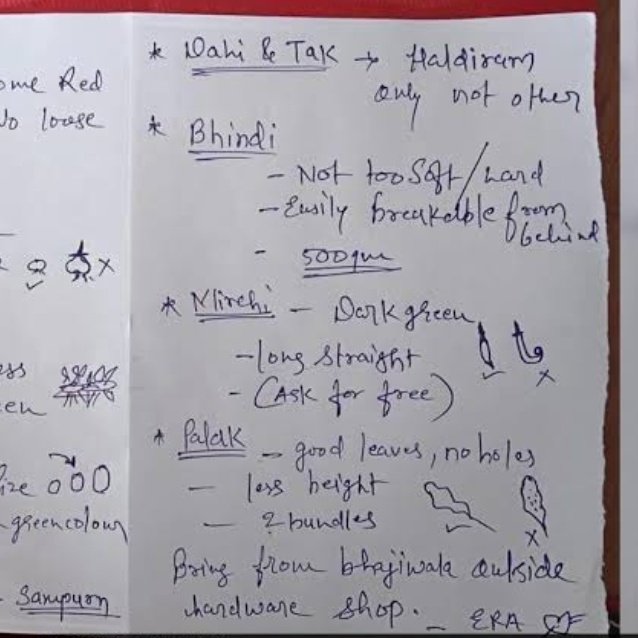 ome Red
No loose
ess
en
size
green colour
- Sampurn
* Dahi & Tak → Haldiram
only not other
* Bhindi
- Not too soft/hard
- Easily breakable from
behind
- 500gm
* Mirchi - Dark green
- long straight
- (Ask for free)
* Palak - good leaves, no holes
- less height
- 2 bundles
Bring from bhajiwala outside
hardware shop. - ERA